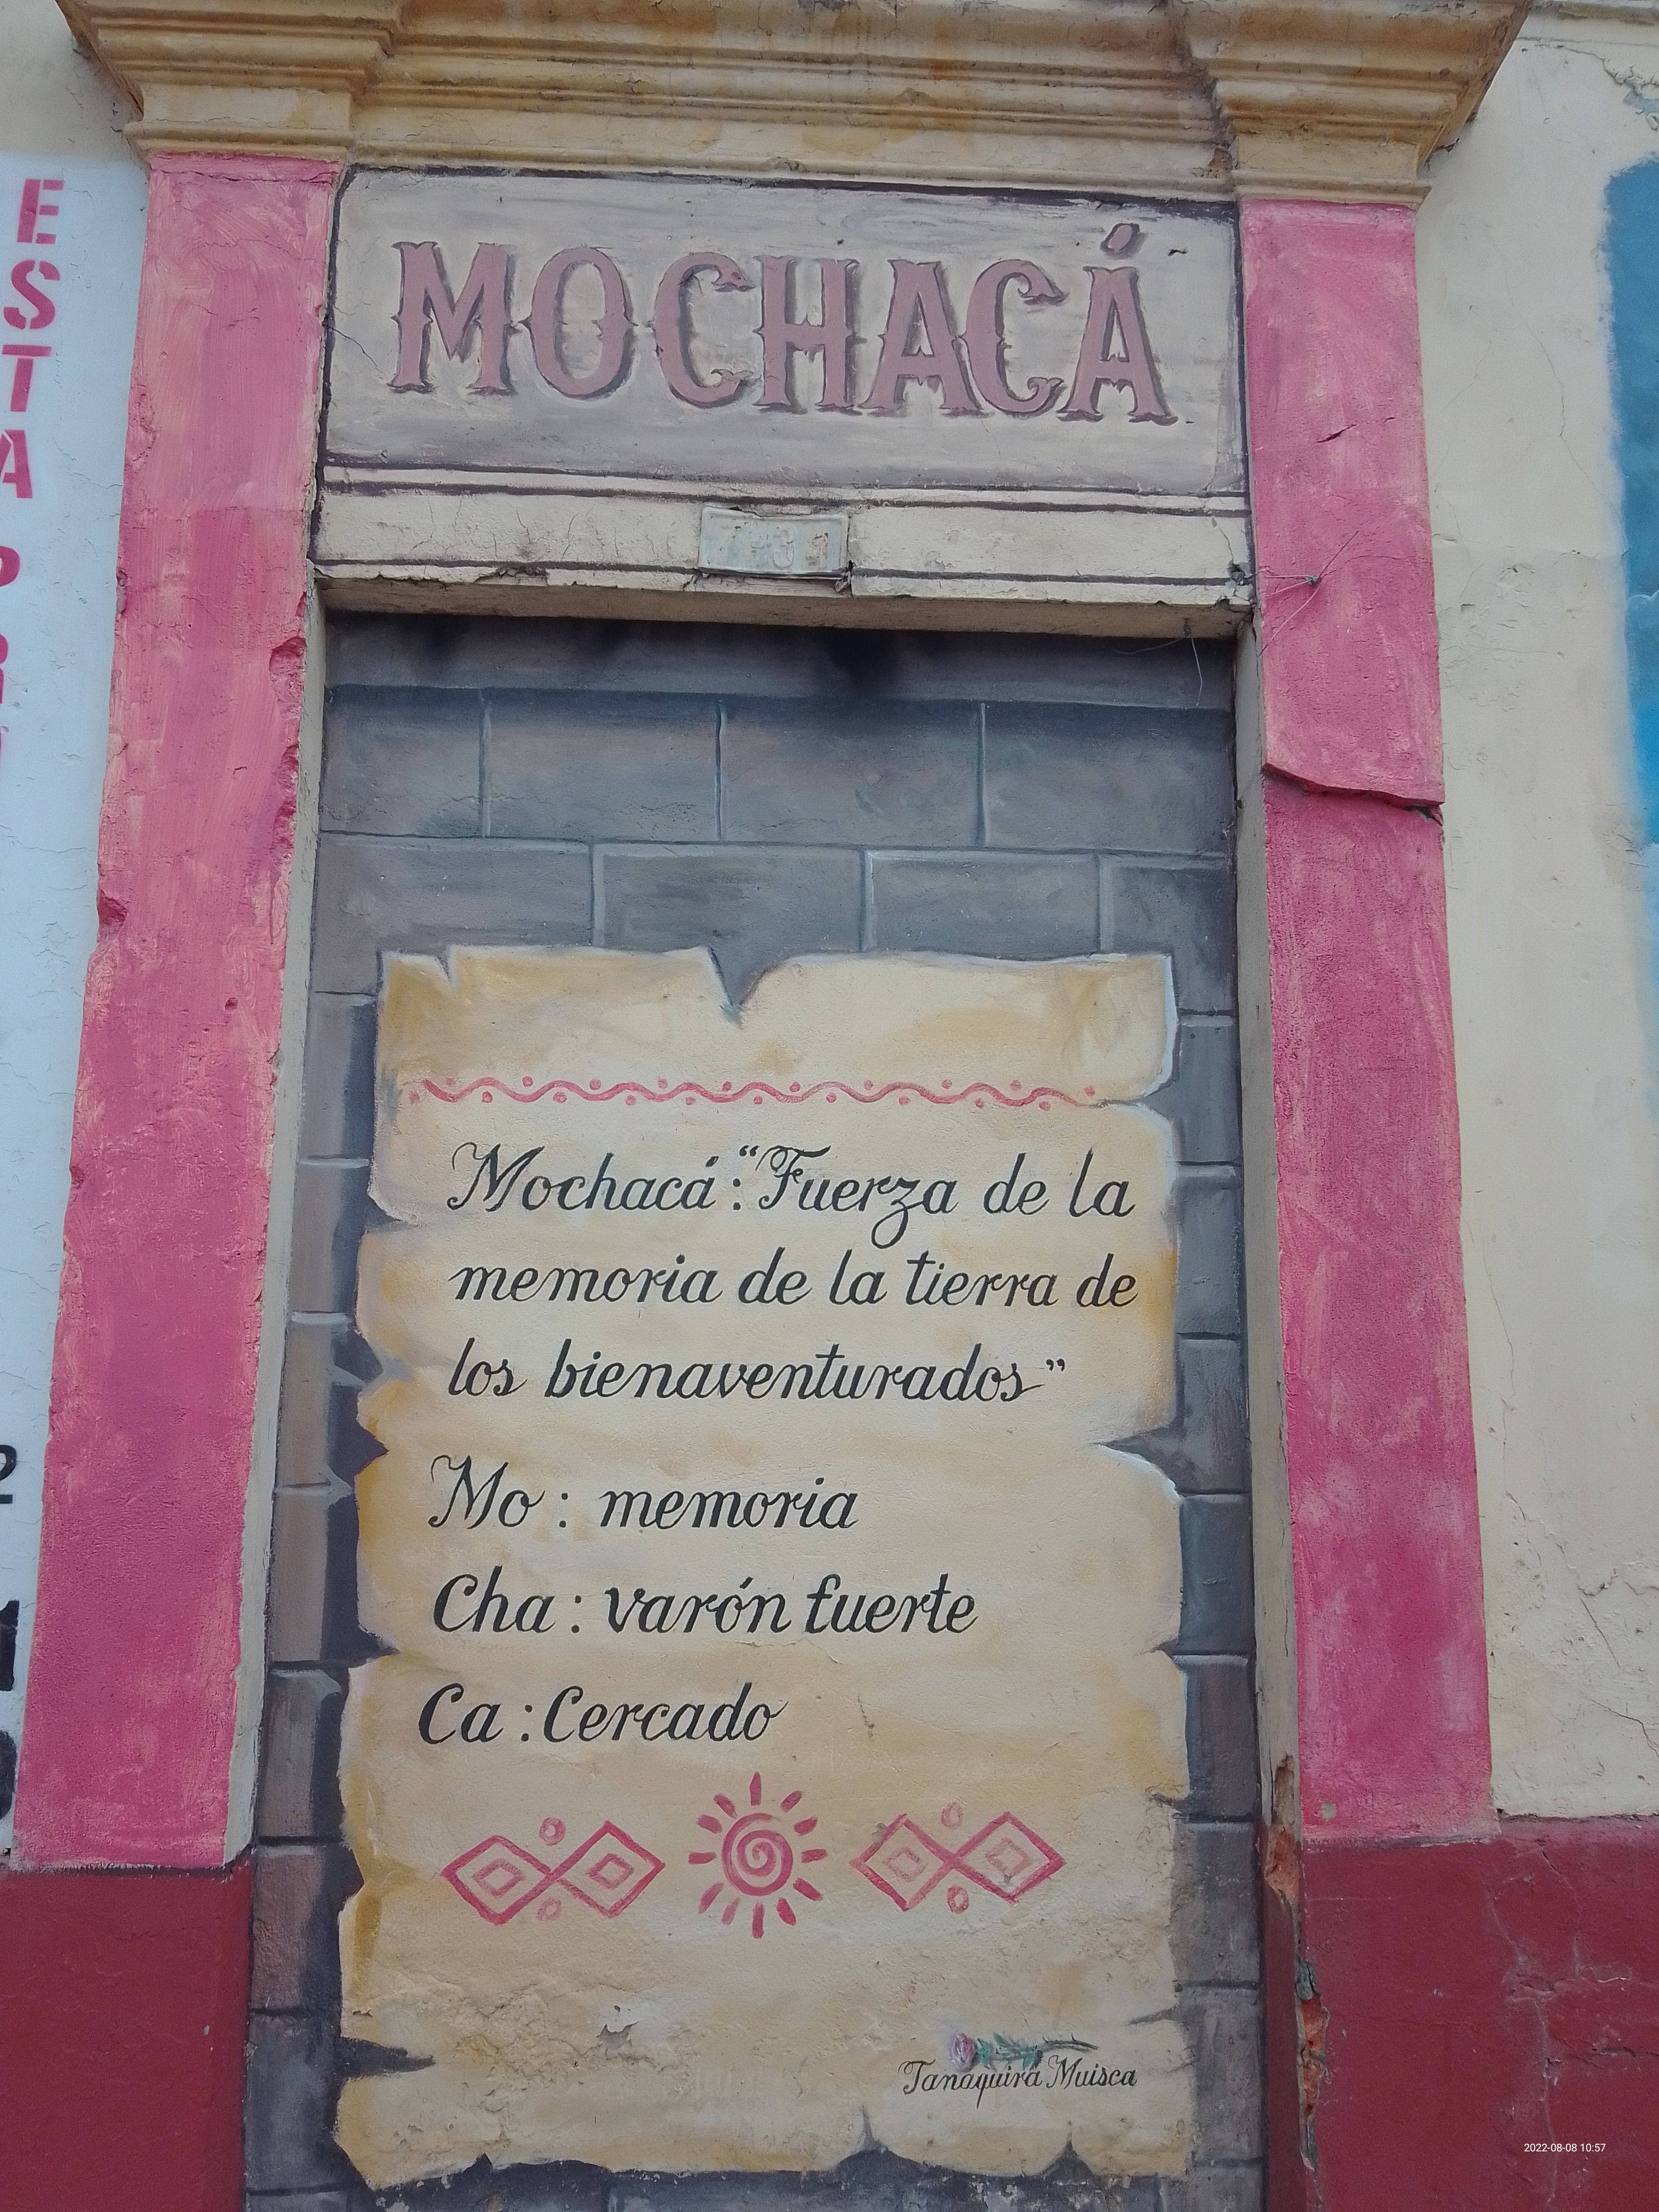 MOCHACÁ
Mochacá: "Fuerza de la
memoria de la tierra de
los bienaventurados"
Mo : memoria
Cha : varón fuerte
Ca : Cercado
Tanaquirá Muisca
E
S
T
A
2022-08-08 10:57